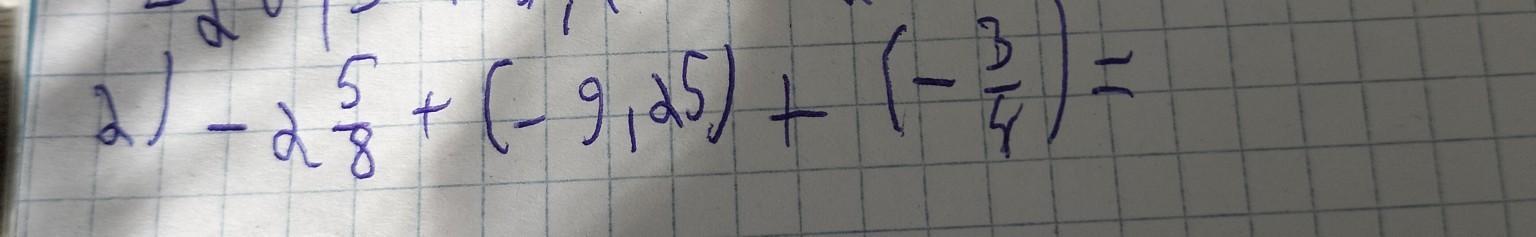 2) - 2 5/8 + (- 9,25) + (- 3/4) =